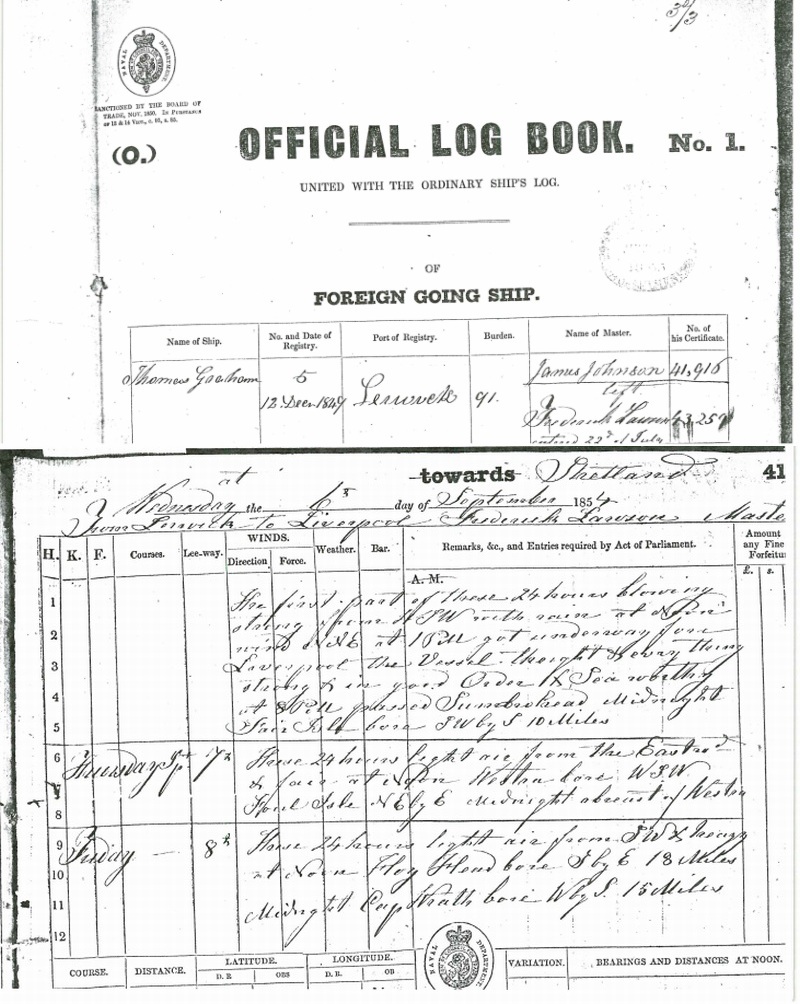 3/3
NAVAL DEPARTMENT.
SANCTIONED BY THE BOARD OF
TRADE, NOV. 1850. IN PURSUANCE
OF 13 & 14 VICT., C. 93, S. 85.
(O.)
OFFICIAL LOG BOOK. No. 1.
UNITED WITH THE ORDINARY SHIP'S LOG.
OF
FOREIGN GOING SHIP.
Name of Ship. No. and Date of Registry. Port of Registry. Burden. Name of Master. No. of his Certificate.
Thomas Graham 5 Lerwick 91. James Johnson 41,916
12 Decr 1849 left
Frederick Lawson 43,259
entered 22d of July
at towards Shetland 41
Wednesday the 6th day of September 1854
From Lerwick to Liverpool Frederick Lawson Maste
H. K. F. Courses. Lee-way. WINDS. Direction. Force. Weather. Bar. Remarks, &c., and Entries required by Act of Parliament. Amount any Fine Forfeitu
£. s.
A. M.
1 The first part of these 24 hours blowing
strong from SW with rain at Noon
2 wind NNE at 1 PM got underway for
3 Liverpool the Vessel thought & every thing
strong & in good Order & Sea worthy
4 at 8 PM passed Sumbrohead Midnight
5 Fair Isle bore SW by S 10 Miles
6 Thursday Sp. 7th These 24 hours light air from the Eastrd
7 & fair at Noon Westra bore WSW
8 Foul Isle NE by E Midnight abreast of Westra
9 Friday — 8th These 24 hours light air from SW &
10 at Noon Hoy Head bore S by E 18 Miles
11 Midnight Cap Wrath bore W by S. 15 Miles
12
COURSE. DISTANCE. LATITUDE. D. R OBS LONGITUDE. D. R. OB NAVAL DEPARTMENT. VARIATION. BEARINGS AND DISTANCES AT NOON.